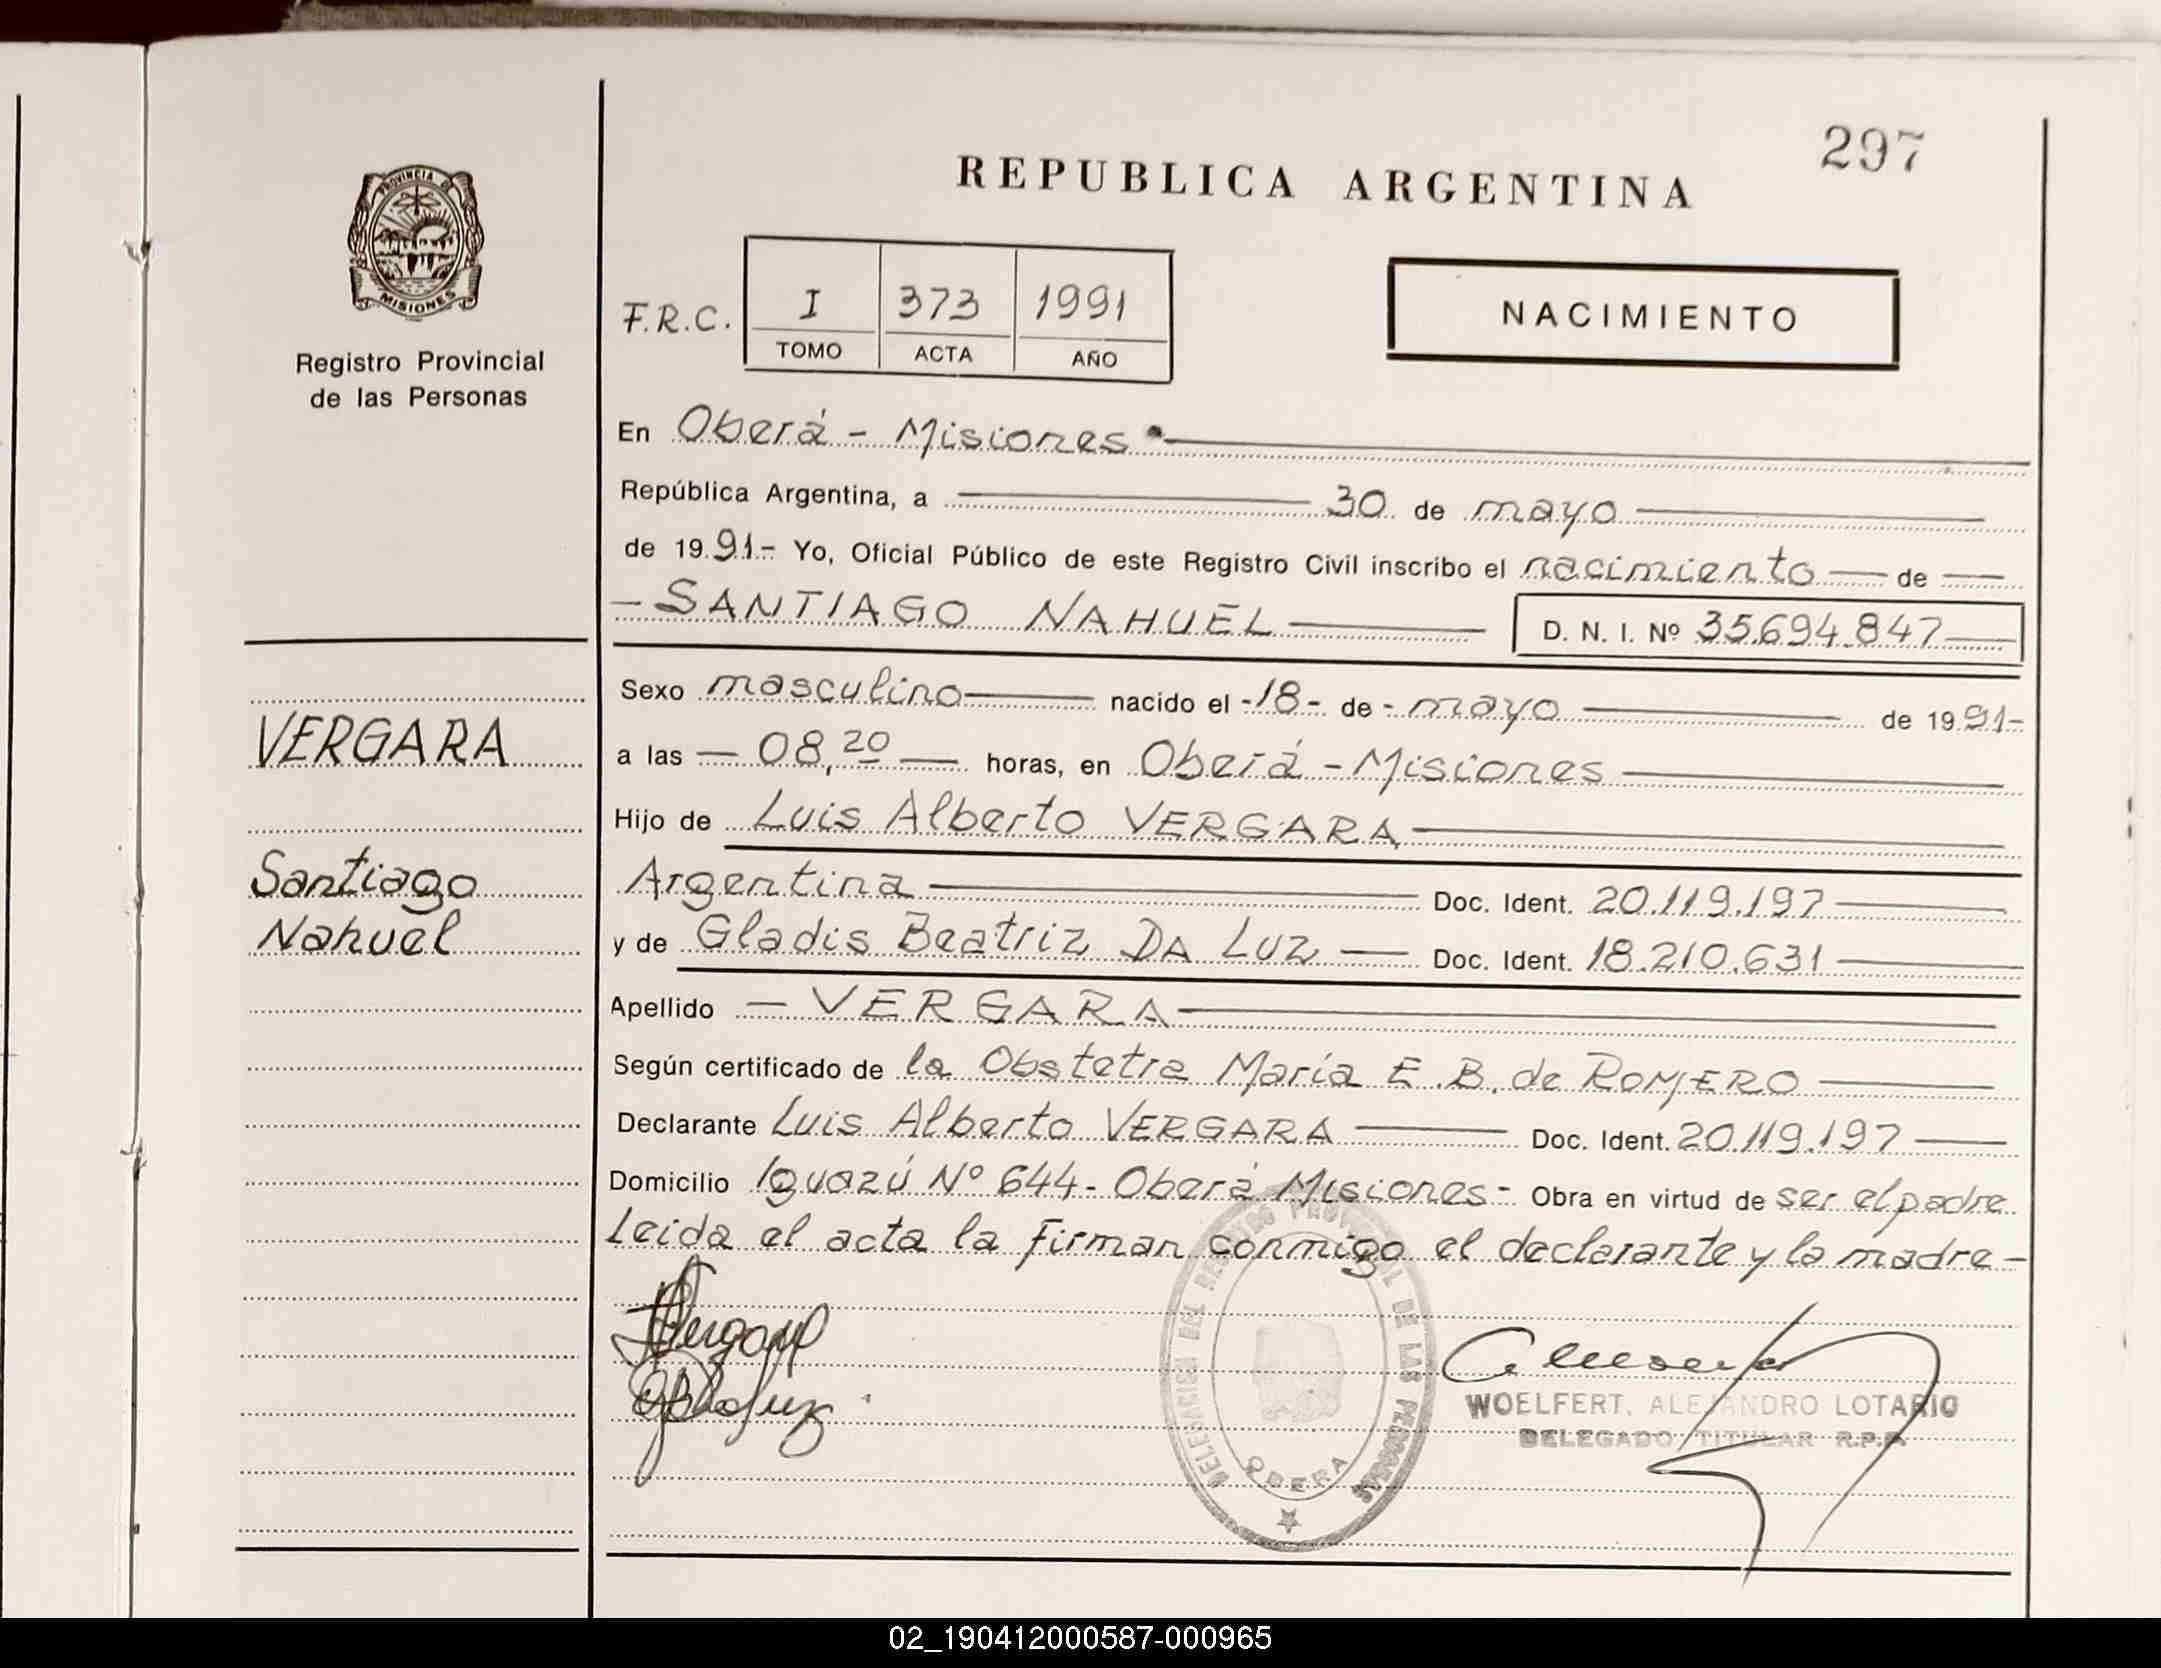 297
REPUBLICA ARGENTINA
PROVINCIA DE
MISIONES
Registro Provincial
de las Personas
F.R.C.
I 373 1991
TOMO ACTA AÑO
NACIMIENTO
En Oberá - Misiones
República Argentina, a 30 de mayo
de 1991- Yo, Oficial Público de este Registro Civil inscribo el nacimiento de
- SANTIAGO NAHUEL D. N. I. Nº 35.694.847
Sexo masculino nacido el -18- de - mayo de 1991-
a las - 08,20 - horas, en Oberá - Misiones
Hijo de Luis Alberto VERGARA
Argentina Doc. Ident. 20.119.197
y de Gladis Beatriz DA LUZ Doc. Ident. 18.210.631
Apellido - VERGARA
Según certificado de la Obstetra María E. B. de ROMERO
Declarante Luis Alberto VERGARA Doc. Ident. 20.119.197
Domicilio Iguazú Nº 644 - Oberá Misiones - Obra en virtud de ser el padre
Leida el acta la firman conmigo el declarante y la madre -
VERGARA
Santiago
Nahuel
DELEGACION DEL REGISTRO PROVINCIAL DE LAS PERSONAS
OBERA
WOELFERT, ALEJANDRO LOTARIO
DELEGADO TITULAR R.P.P.
02_190412000587-000965